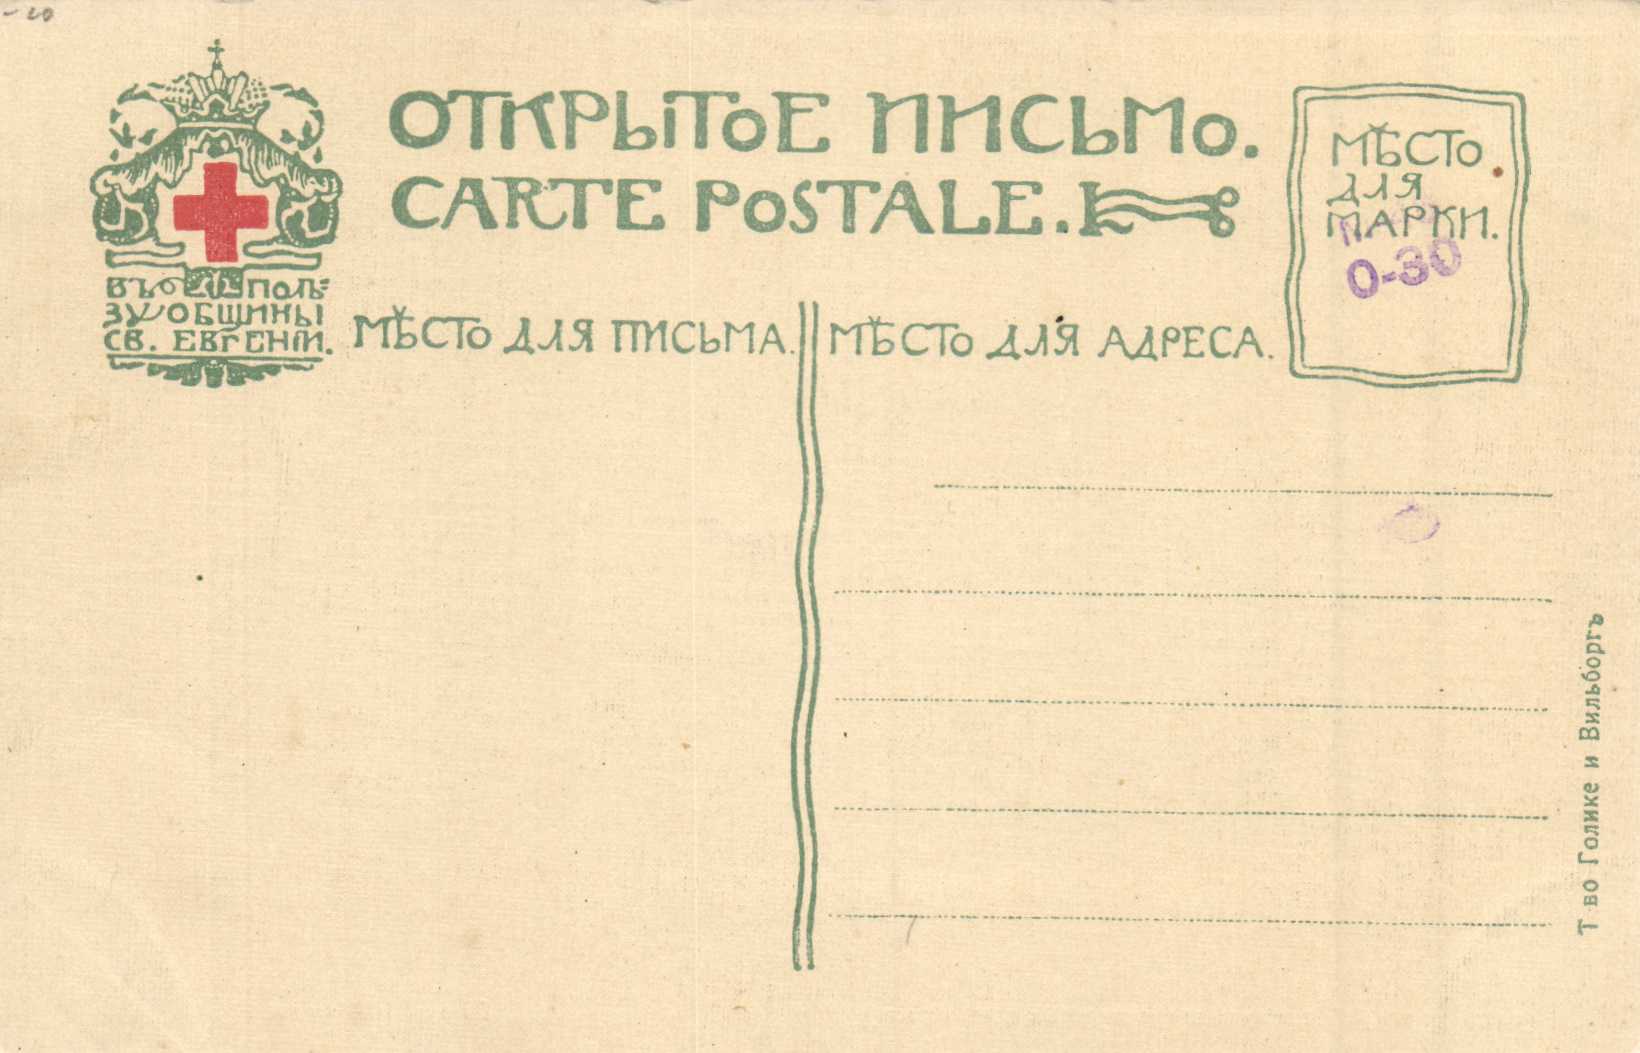 -20
ОТКРЫТОЕ ПИСЬМО.
CARTE POSTALE.
ВЪ ПОЛЬ=
ЗУ ОБЩИНЫ
СВ. ЕВГЕНІИ.
МѢСТО ДЛЯ ПИСЬМА.
МѢСТО ДЛЯ АДРЕСА.
МѢСТО
ДЛЯ
МАРКИ.
0-30
Т во Голике и Вильборгъ